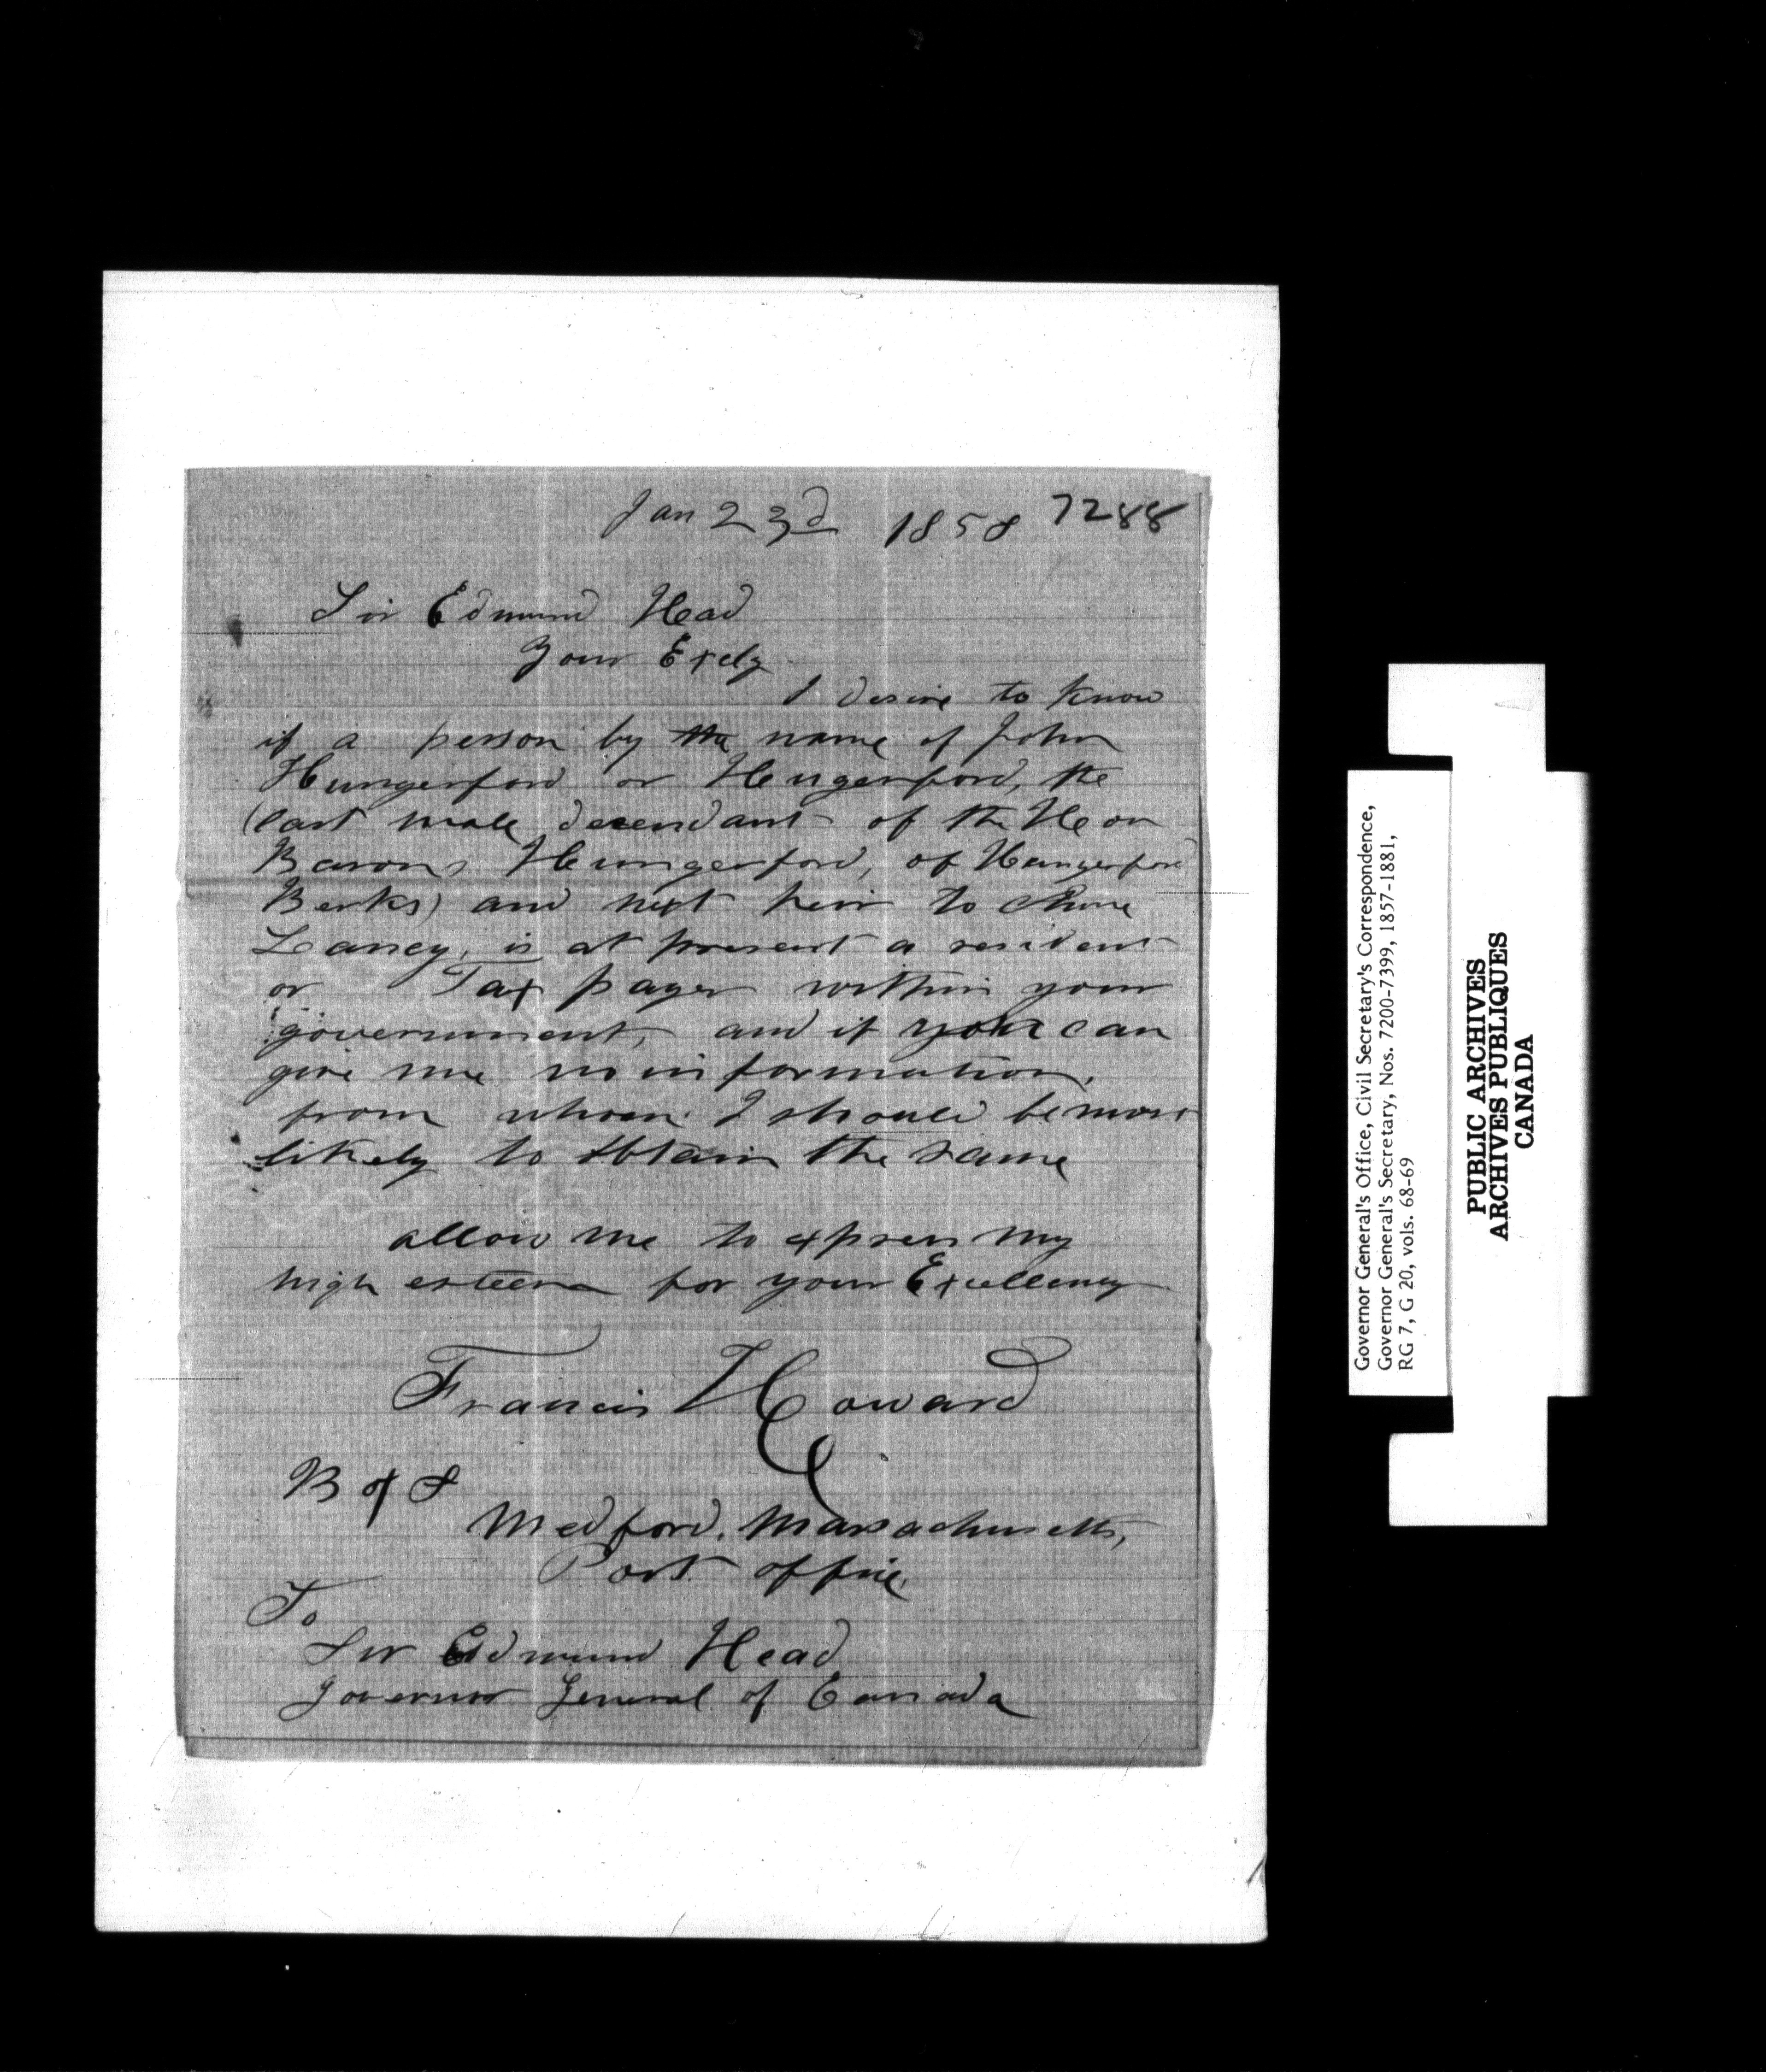 Jan 23d 1858 7288
Sir Edmund Head
Your Excly
I desire to know
if a person by the name of John
Hungerford or Hungerford, the
(last male decendant of the Hon
Barons Hungerford, of Hungerford
Berks) and next heir to
is at present a resident
or Tax payer within your
government, and if you can
give me no information,
from whom I should be most
likely to obtain the same
allow me to express my
high esteem for your Excellency
Francis Howard
B of S
Medford, Massachusetts,
Post office
To
Sir Edmund Head
Governor General of Canada
Governor General's Office, Civil Secretary's Correspondence,
Governor General's Secretary, Nos. 7200-7399, 1857-1881,
RG 7, G 20, vols. 68-69
PUBLIC ARCHIVES
ARCHIVES PUBLIQUES
CANADA